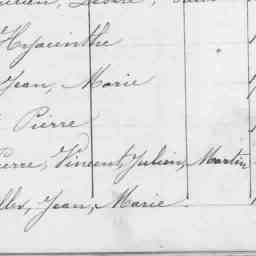 Hyacinthe
Jean, Marie
Pierre
Pierre, Vincent, Julien, Martin
Jean, Marie